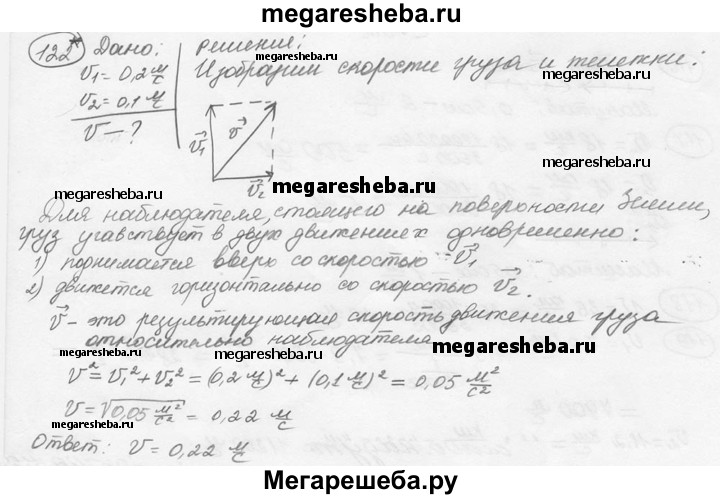 megaresheba.ru
122* Дано: Решение:
v1 = 0,2 м/с Изобразим скорости груза и тележки:
v2 = 0,1 м/с
v - ?
v1 v v2
megaresheba.ru
megaresheba.ru
megaresheba.ru
megaresheba.ru
Для наблюдателя, стоящего на поверхности Земли,
груз участвует в двух движениях одновременно:
1) поднимается вверх со скоростью v1
megaresheba.ru
megaresheba.ru
2) движется горизонтально со скоростью v2.
v - это результирующая скорость движения груза
относительно наблюдателя.
megaresheba.ru
megaresheba.ru
v² = v1² + v2² = (0,2 м/с)² + (0,1 м/с)² = 0,05 м²/с²
v = √0,05 м²/с² = 0,22 м/с
Ответ: v = 0,22 м/с
megaresheba.ru
Мегарешеба.ру